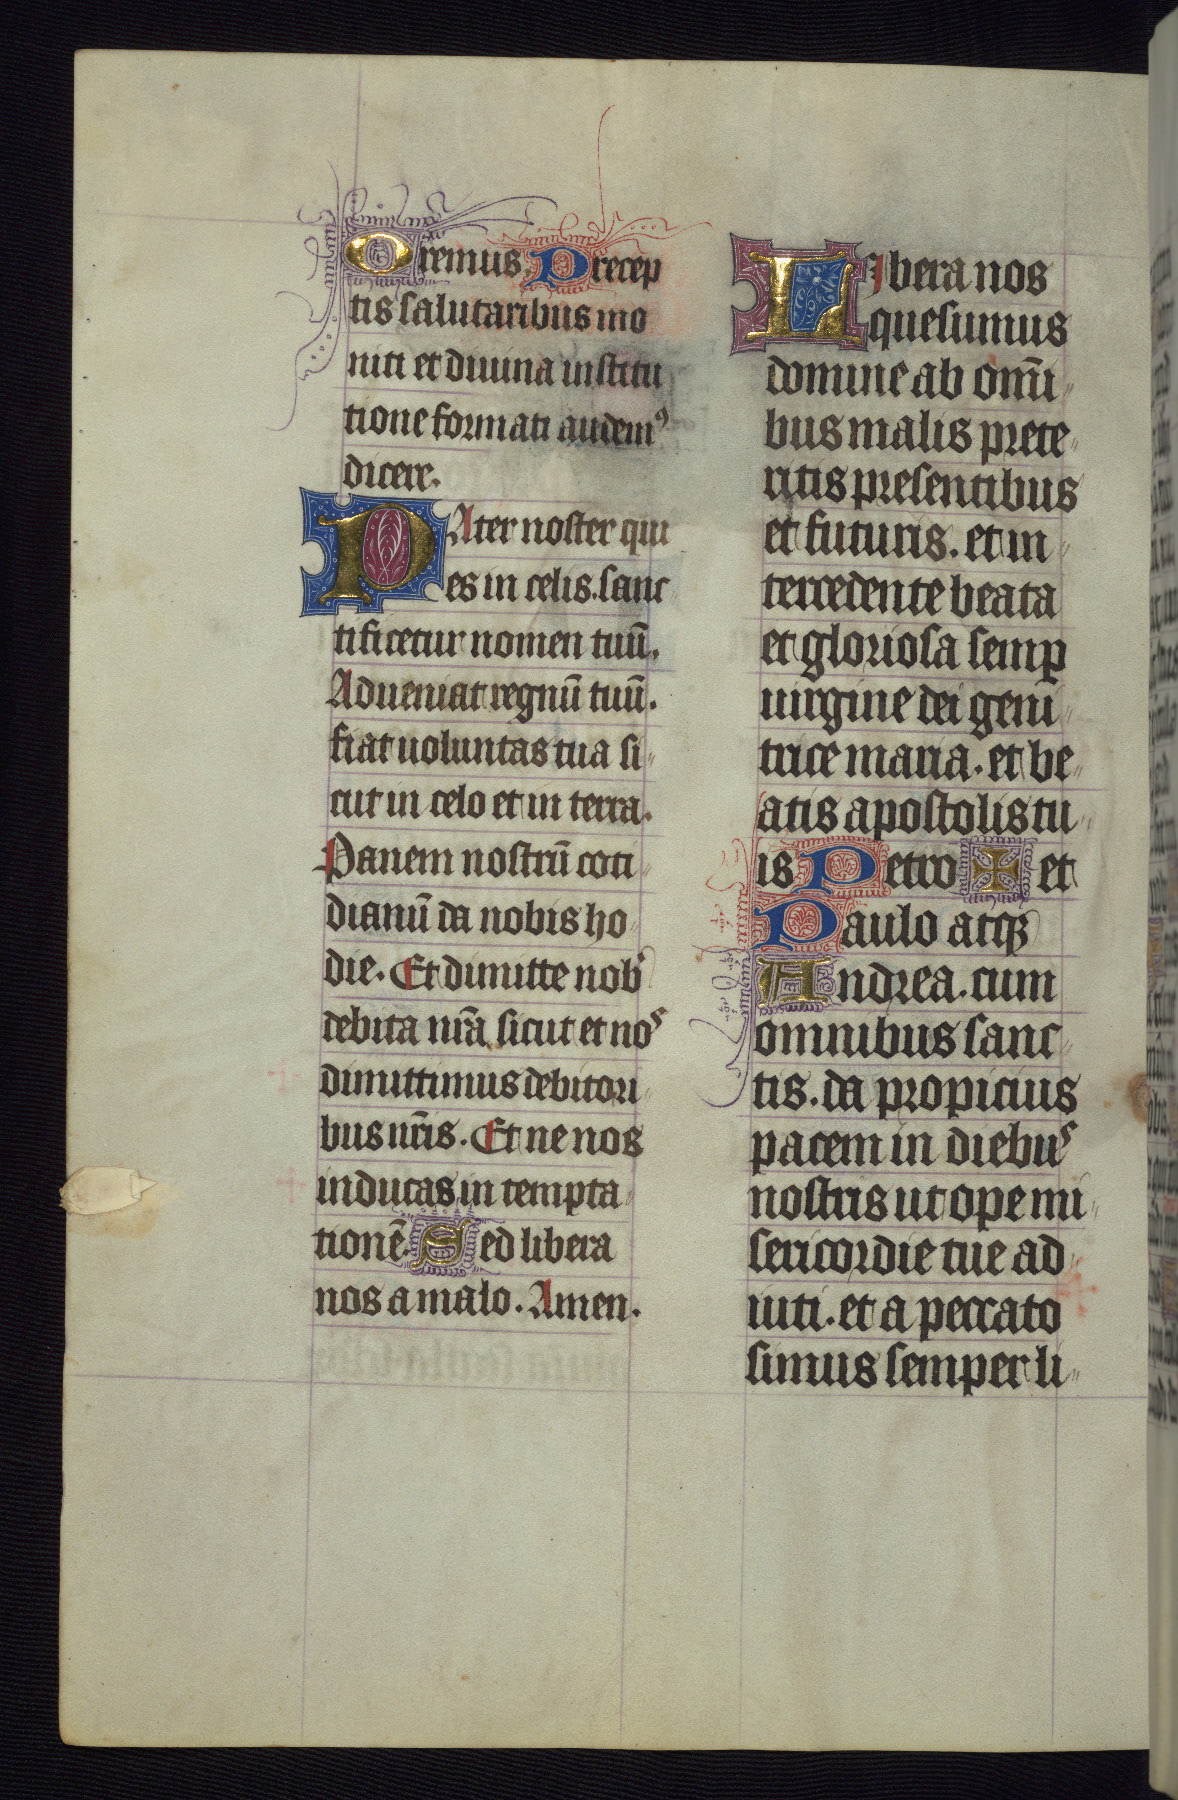 Oremus. Precep
tis salutaribus mo
niti et diuina institu
tione formati audemꝰ
dicere.
PAter noster qui
es in celis. sanc
tificetur nomen tuū.
Adueniat regnū tuū.
fiat uoluntas tua si
cut in celo et in terra.
Panem nostrū coti
dianū da nobis ho
die. Et dimitte nob̛
debita nr̄a sicut et nos
dimittimus debitori
bus nr̄is. Et ne nos
inducas in tempta
tionē. Sed libera
nos a malo. Amen.
LIbera nos
quesumus
domine ab omī
bus malis prete
ritis presentibus
et futuris. et in
tercedente beata
et gloriosa semꝑ
uirgine dei geni
trice maria. et be
atis apostolis tu
is Petro ✠ et
Paulo atqꝫ
Andrea. cum
omnibus sanc
tis. da propicius
pacem in diebus
nostris ut ope mi
sericordie tue ad
iuti. et a peccato
simus semper li